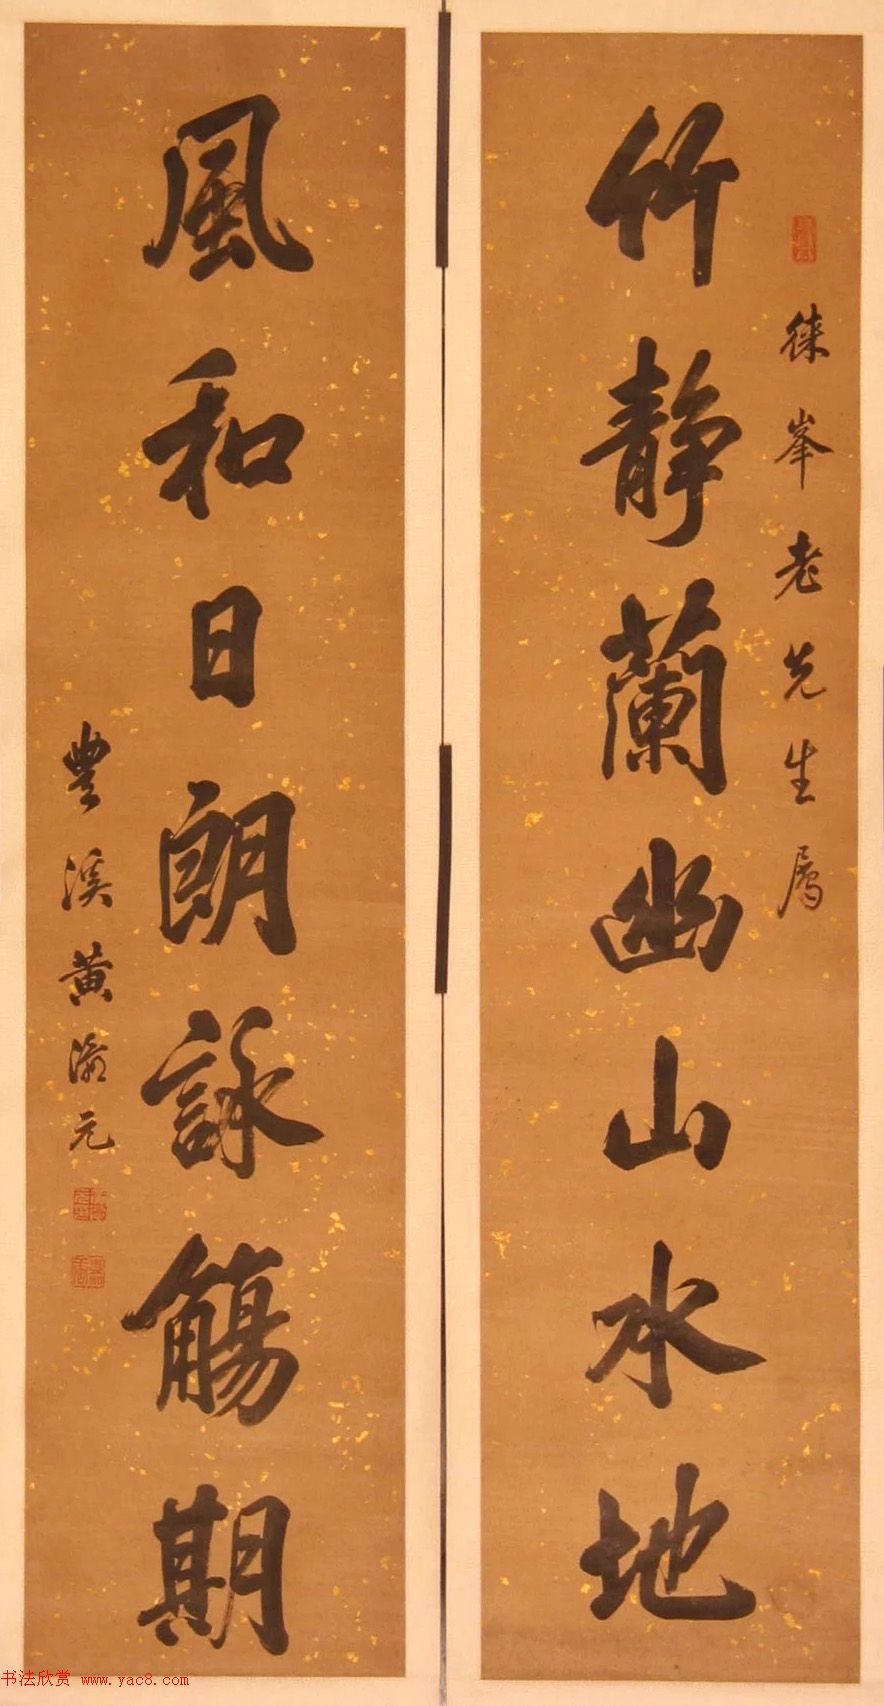 徠峯老先生属
竹静蘭幽山水地
風和日朗詠觴期
豐溪黄濬元
书法欣赏 www.yac8.com